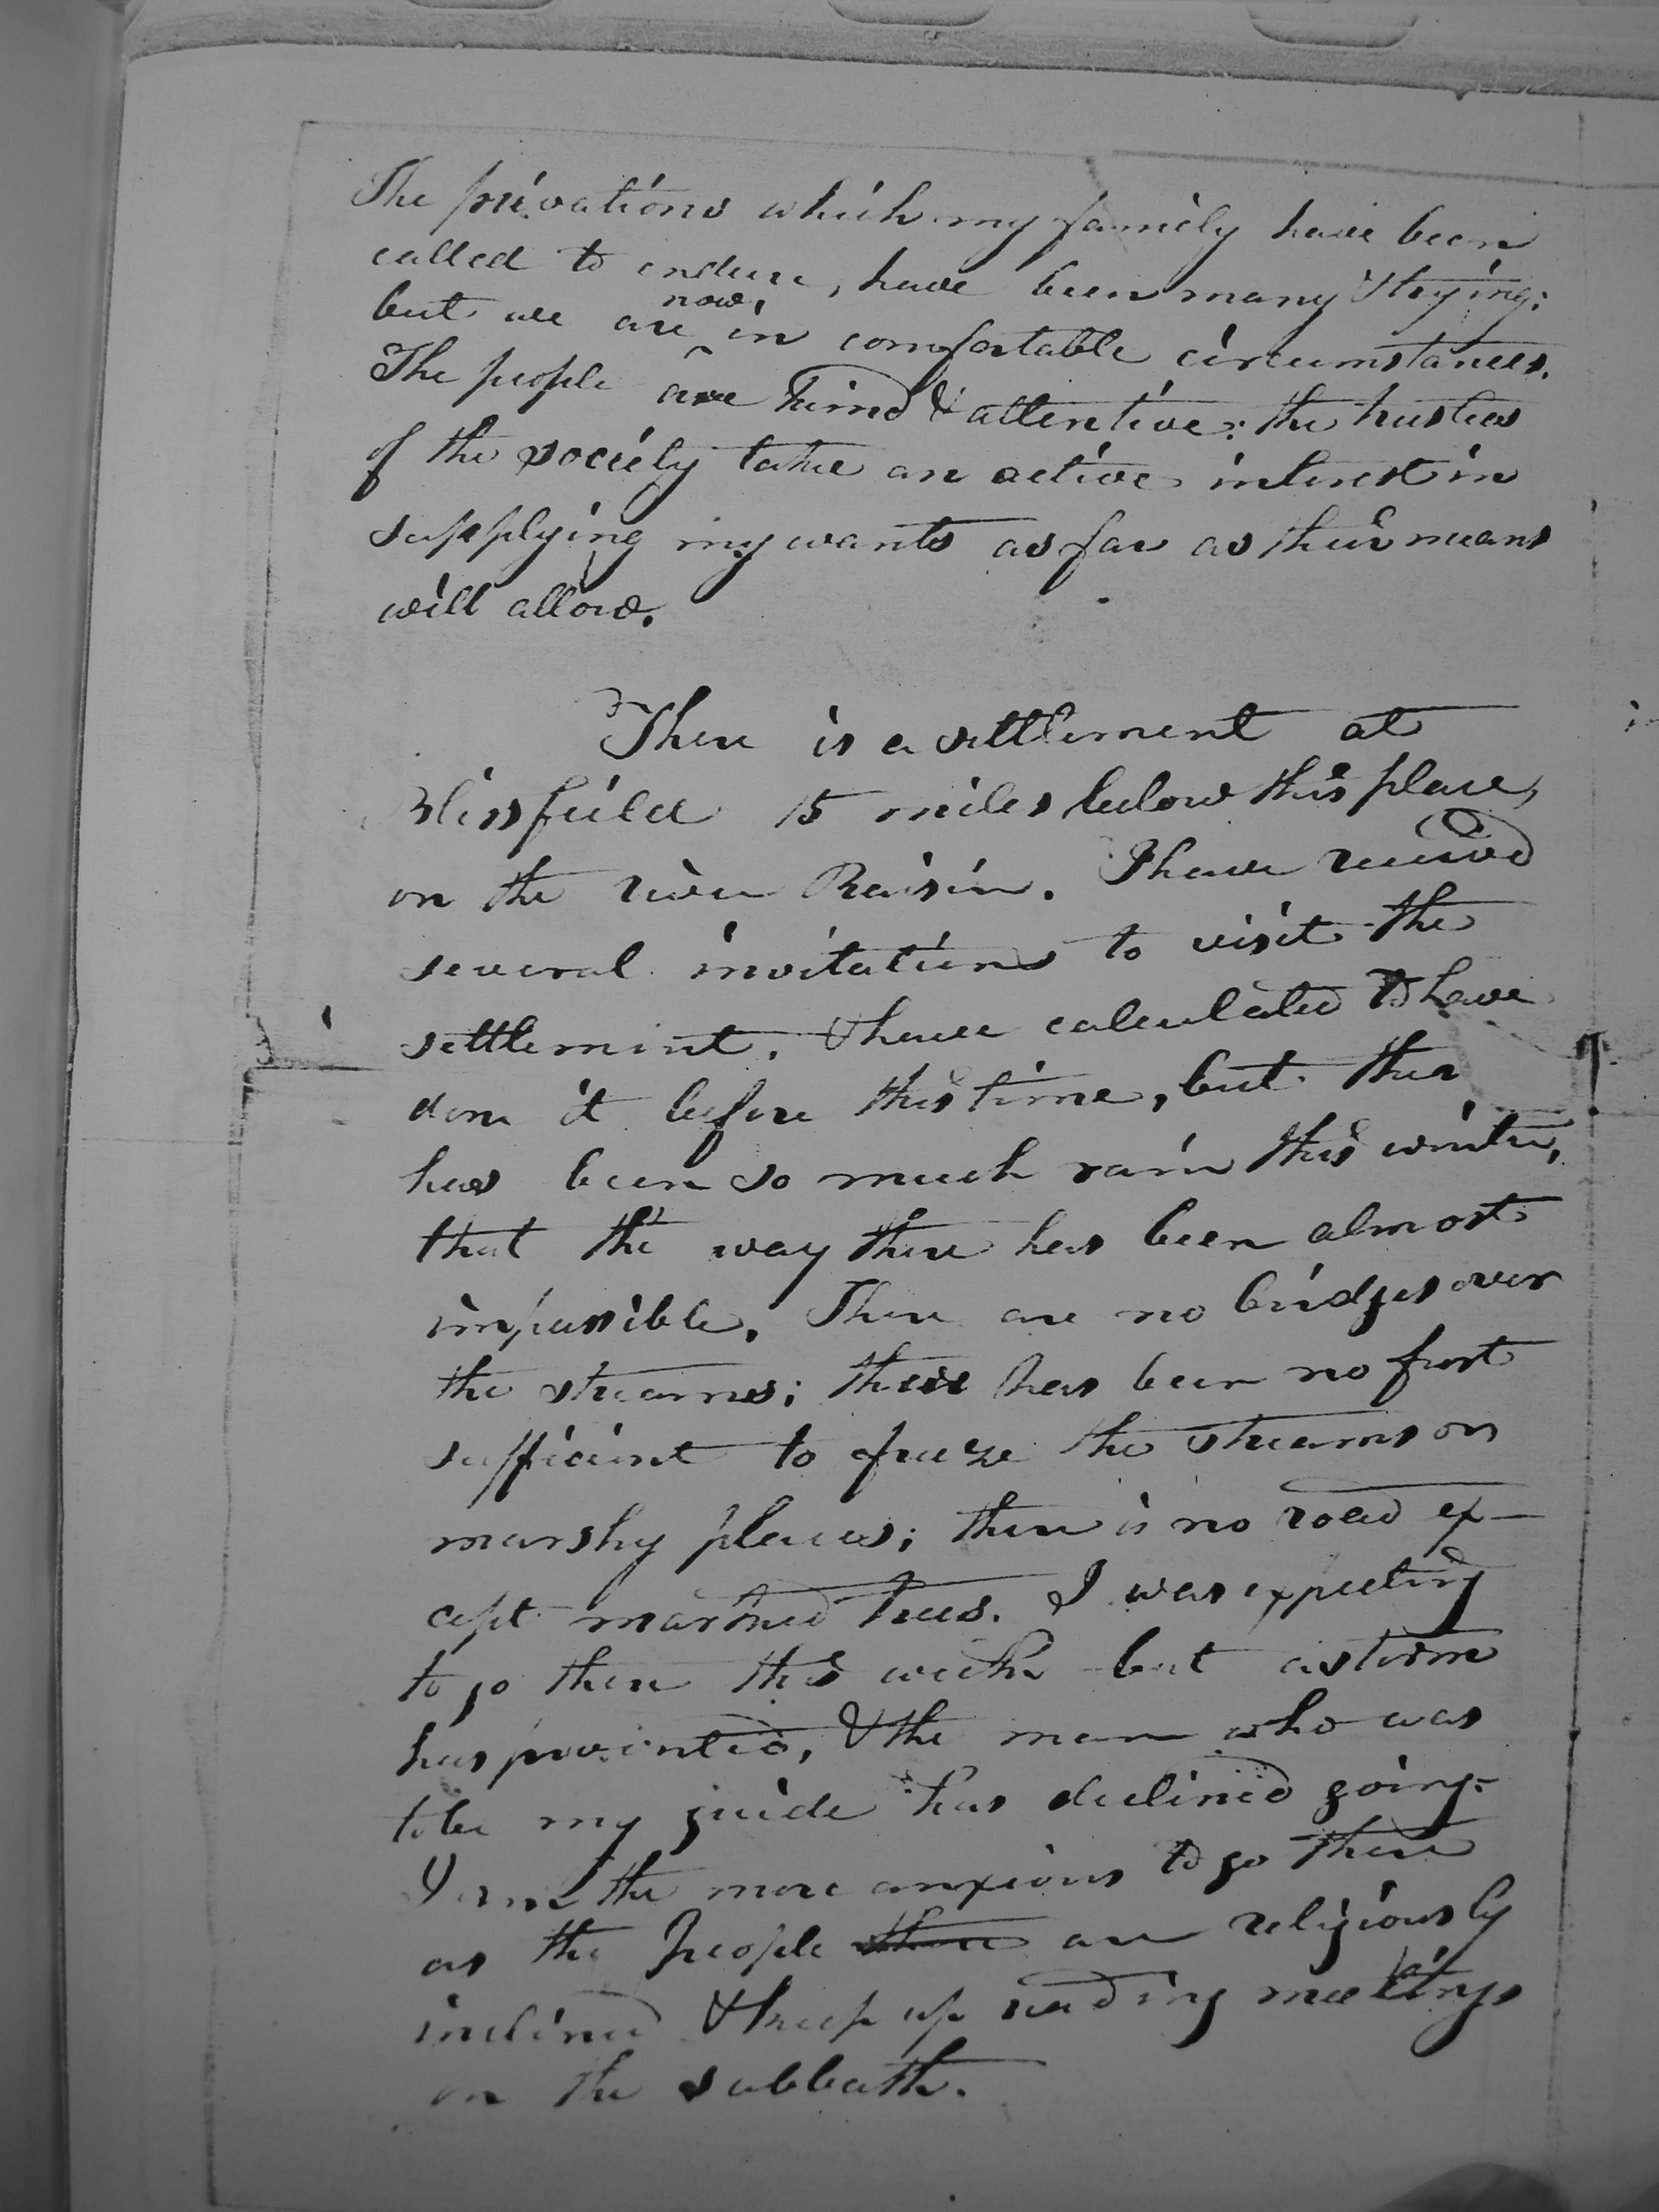 The privations which my family have been
called to endure, have been many & trying;
but we are now in comfortable circumstances.
The people are kind & attentive; the trustees
of the society take an active interest in
supplying my wants as far as their means
will allow.
There is a settlement at
Blissfield 15 miles below this place,
on the river Raisin. I have received
several invitations to visit the
settlement, & have calculated to have
done it before this time, but ther
has been so much rain this winter,
that the way there has been almost
impassible. There are no bridges over
the streams; there has been no frost
sufficient to freeze the streams or
marshy places; there is no road ex-
cept marked trees. I was expecting
to go there this week but a storm
has prevented, & the man who was
to be my guide has declined going.
I am the more anxious to go there
as the People there are religiously
inclined & keep up reading meetings
on the sabbath.